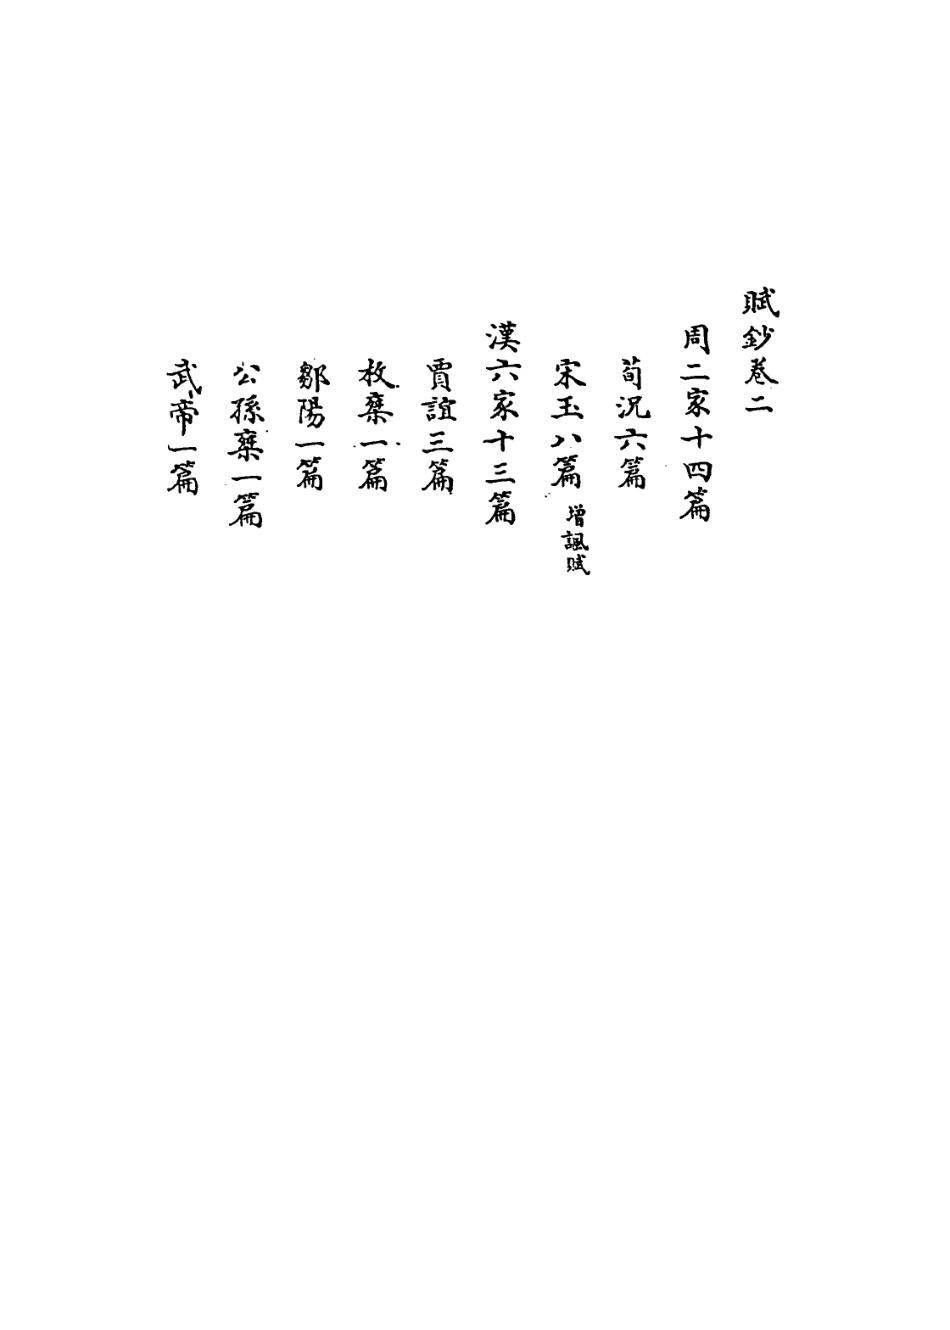 賦鈔卷二
周二家十四篇
荀況六篇
宋玉八篇 增諷賦
漢六家十三篇
賈誼三篇
枚椉一篇
鄒陽一篇
公孫椉一篇
武帝一篇